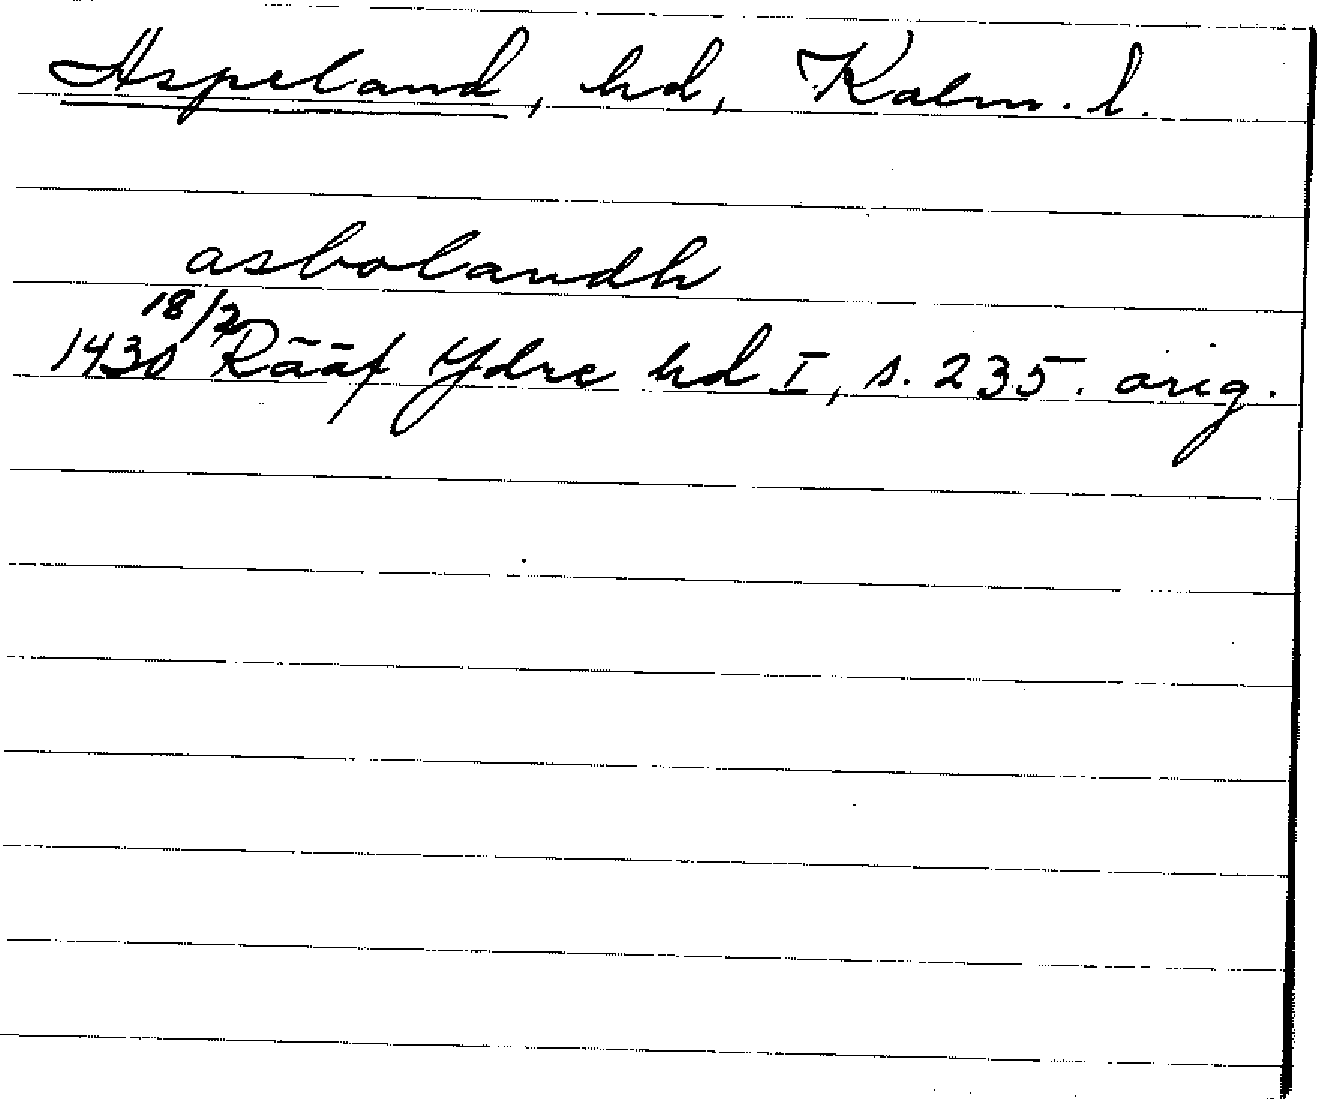 Aspeland, hd, Kalm. l.
asbolandh
18/2
1430 Rääf Ydre hd I, s. 235. orig.